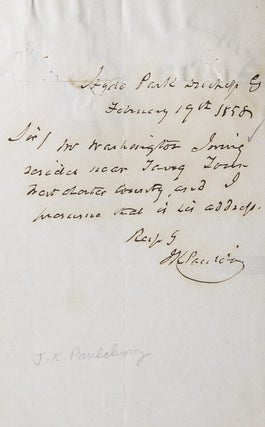 Hyde Park Duchess Co
February 19th 1858
Sir/ Mr Washington Irving
resides near Tarry Town
West chester County, and I
presume that is his address.
Resp y
JK Paulding
J. K. Paulding